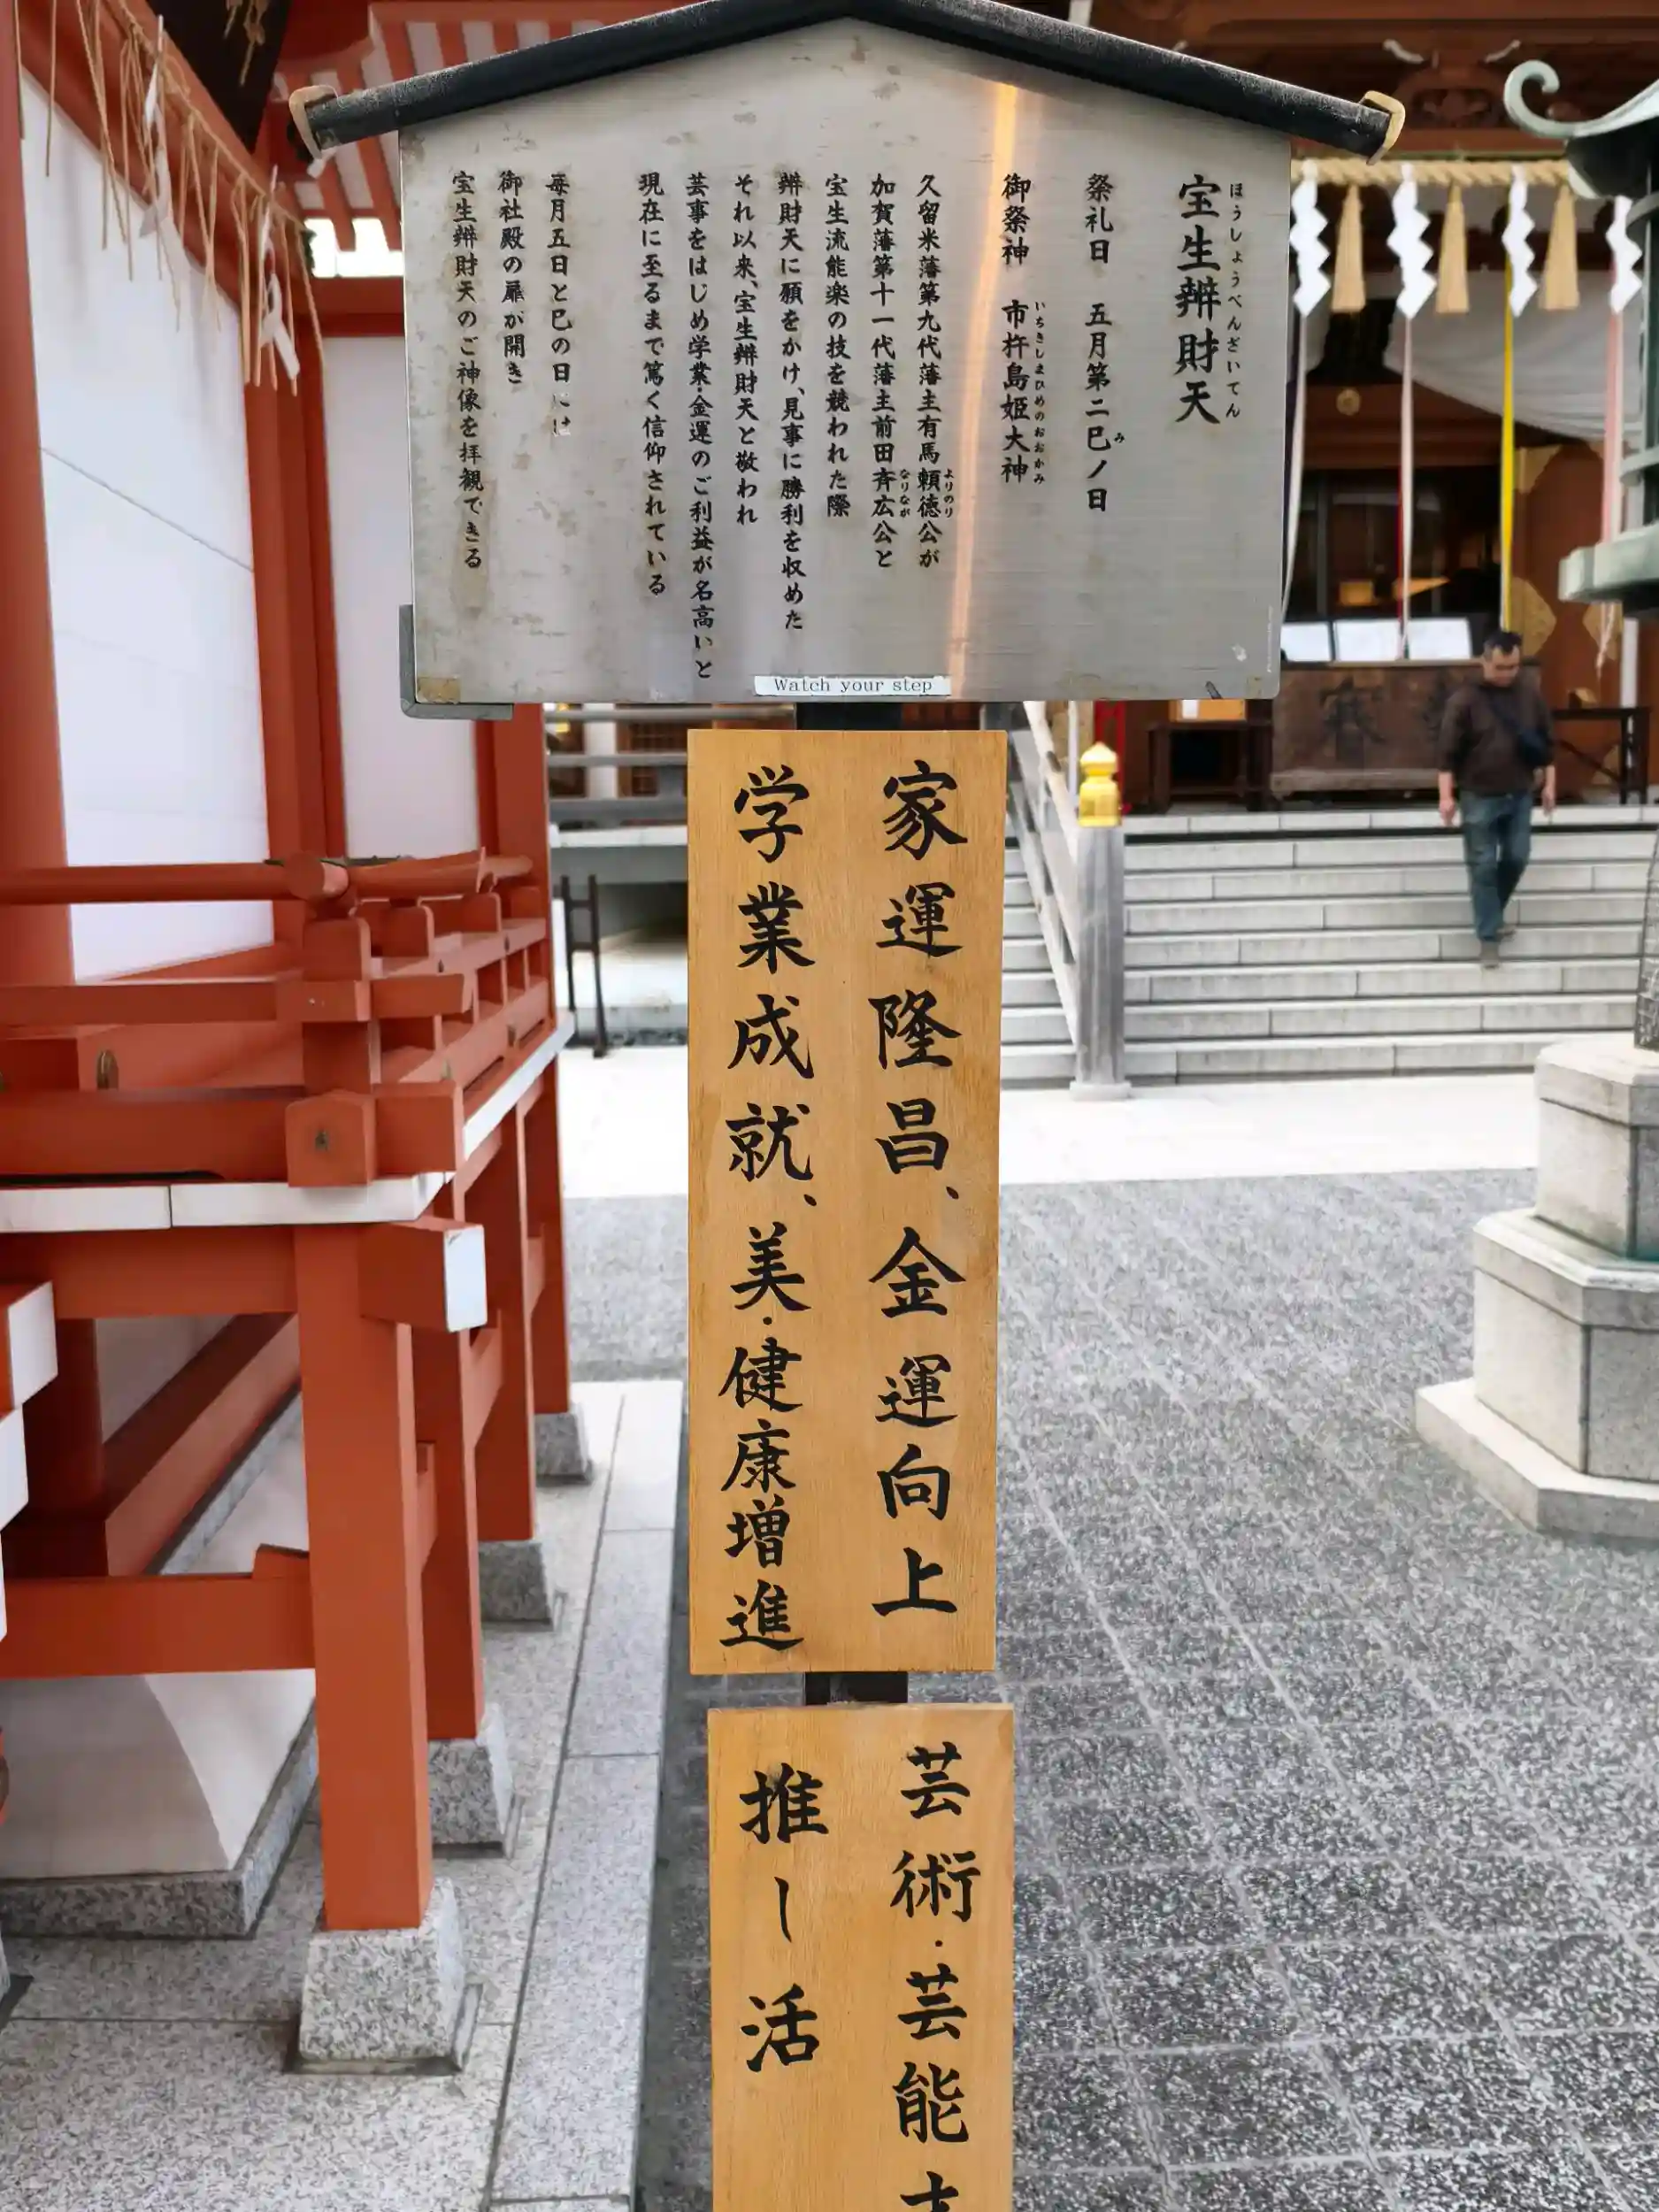 宝生辨財天
ほうしょうべんざいてん
祭礼日 五月第二巳ノ日
み
御祭神 市杵島姫大神
いちきしまひめのおおかみ
久留米藩第九代藩主有馬頼徳公が
よりのり
加賀藩第十一代藩主前田斉広公と
なりなが
宝生流能楽の技を競われた際
辨財天に願をかけ、見事に勝利を収めた
それ以来、宝生辨財天と敬われ
芸事をはじめ学業・金運のご利益が名高いと
現在に至るまで篤く信仰されている
毎月五日と巳の日には
御社殿の扉が開き
宝生辨財天のご神像を拝観できる
Watch your step
家運隆昌、金運向上
学業成就、美・健康増進
芸術・芸能
推し活